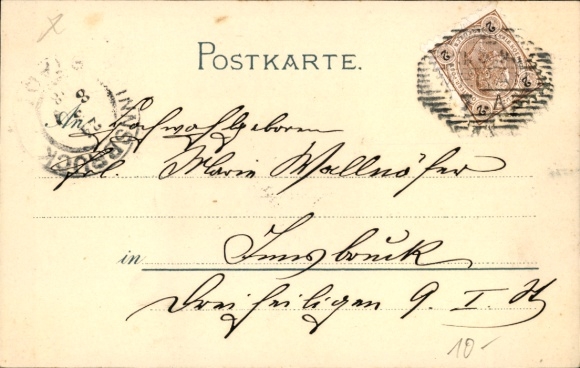 POSTKARTE.
INNSBRUCK
An Hochwohlgeboren
Frl. Marie Wallnöfer
in Innsbruck
Dreiheiligen 9. I. St
10-